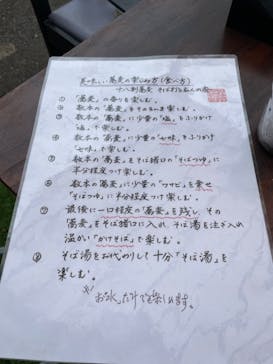 美味しい蕎麦の楽しみ方(食べ方)
十八割蕎麦 そば打ち名人の店
① 「蕎麦」の香りを楽しむ。
② 数本の「蕎麦」をそのまま楽しむ。
③ 数本の「蕎麦」に少量の「塩」をふりかけ
「塩」で楽しむ。
④ 数本の「蕎麦」に少量の「七味」をふりかけ
「七味」で楽しむ。
⑤ 数本の「蕎麦」をそば猪口の「そばつゆ」に
半分程度つけ楽しむ。
⑥ 数本の「蕎麦」に少量の「ワサビ」を乗せ
「そばつゆ」に半分程度つけ楽しむ。
⑦ 最後に一口程度の「蕎麦」を残し、その
「蕎麦」をそば猪口に入れ、そば湯を注ぎ入れ
温かい「かけそば」で楽しむ。
⑧ そば湯をお代わりして十分「そば湯」を
楽しむ。
※お水だけでも楽しめます。